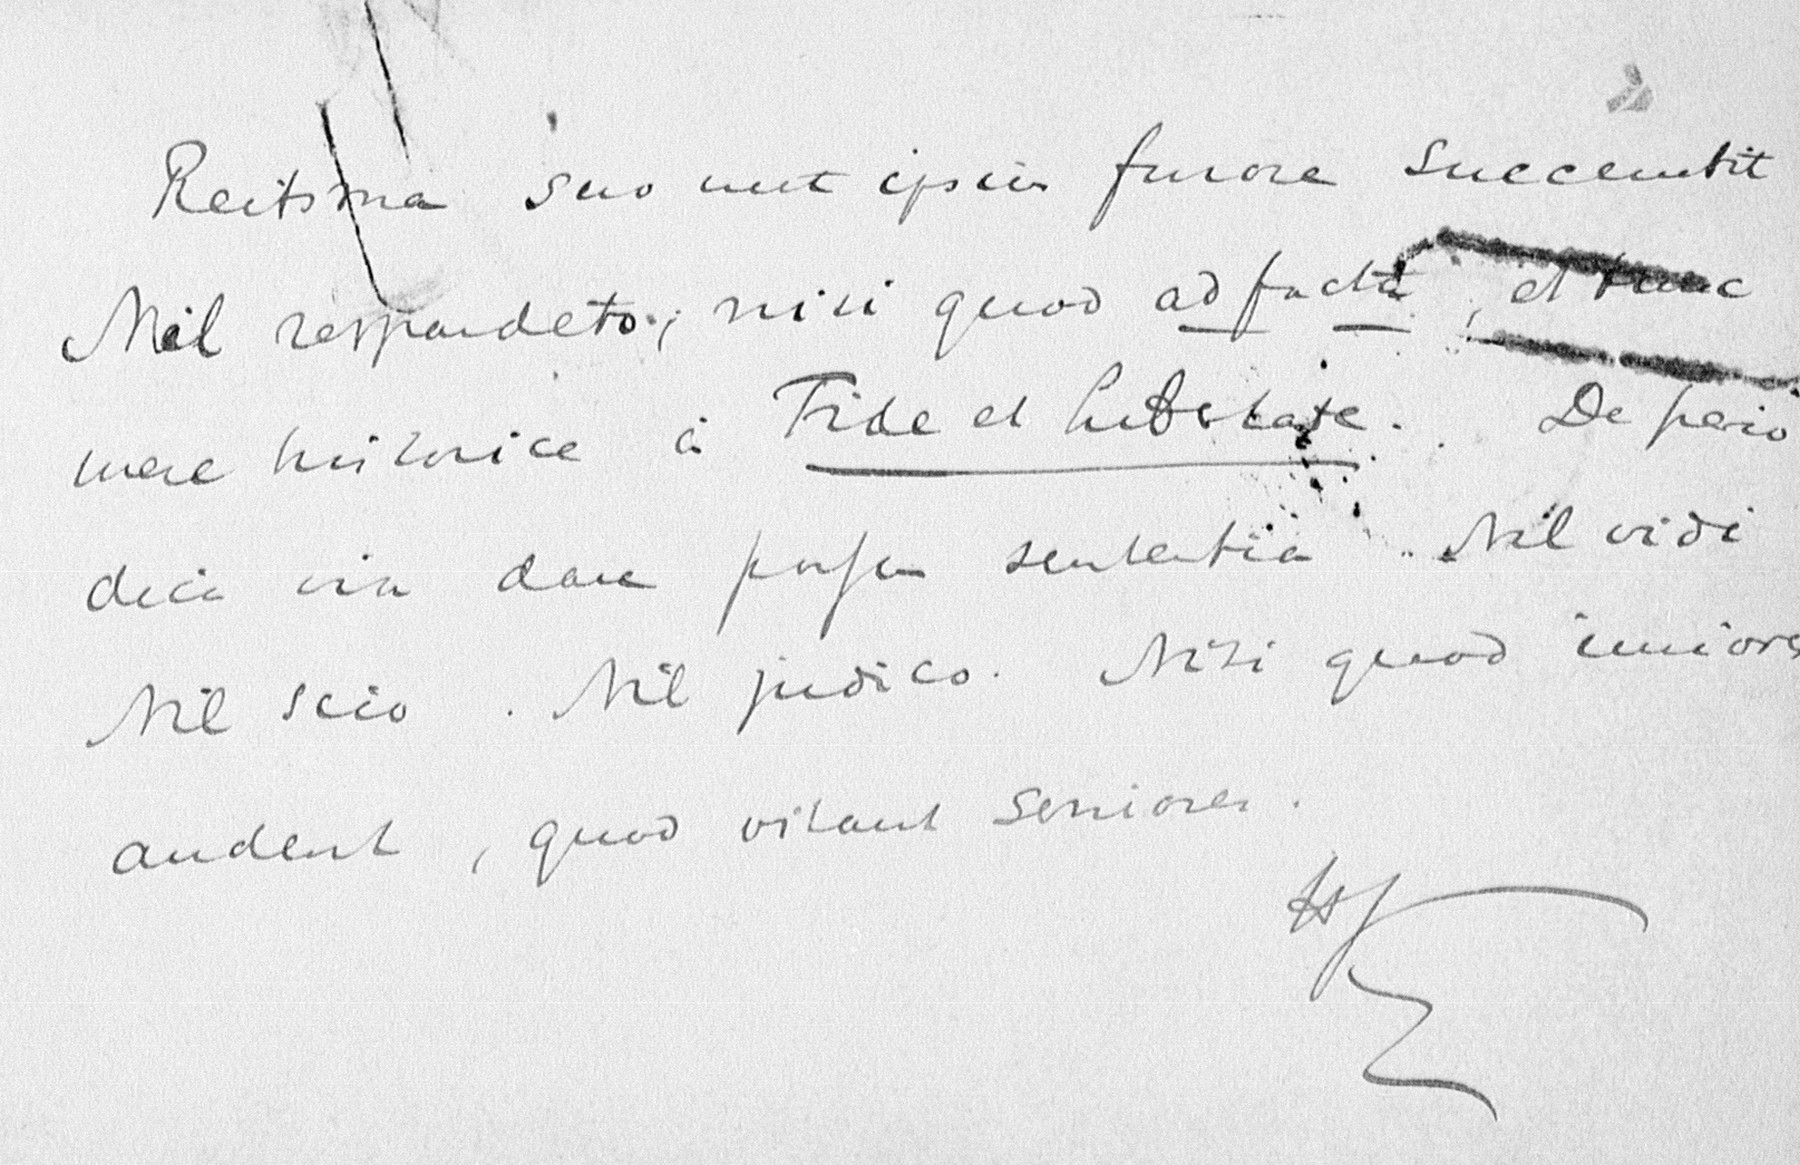 Reitsma suo met ipsius furore succembit
Nil respondeto, nisi quod ad facta, et tunc
mere historice in Fide et Libertate. De perio
dicis vix dare possum sententia. Nil vidi
Nil scio. Nil judico. Nisi quod iuniores
audent, quod vitant seniores.